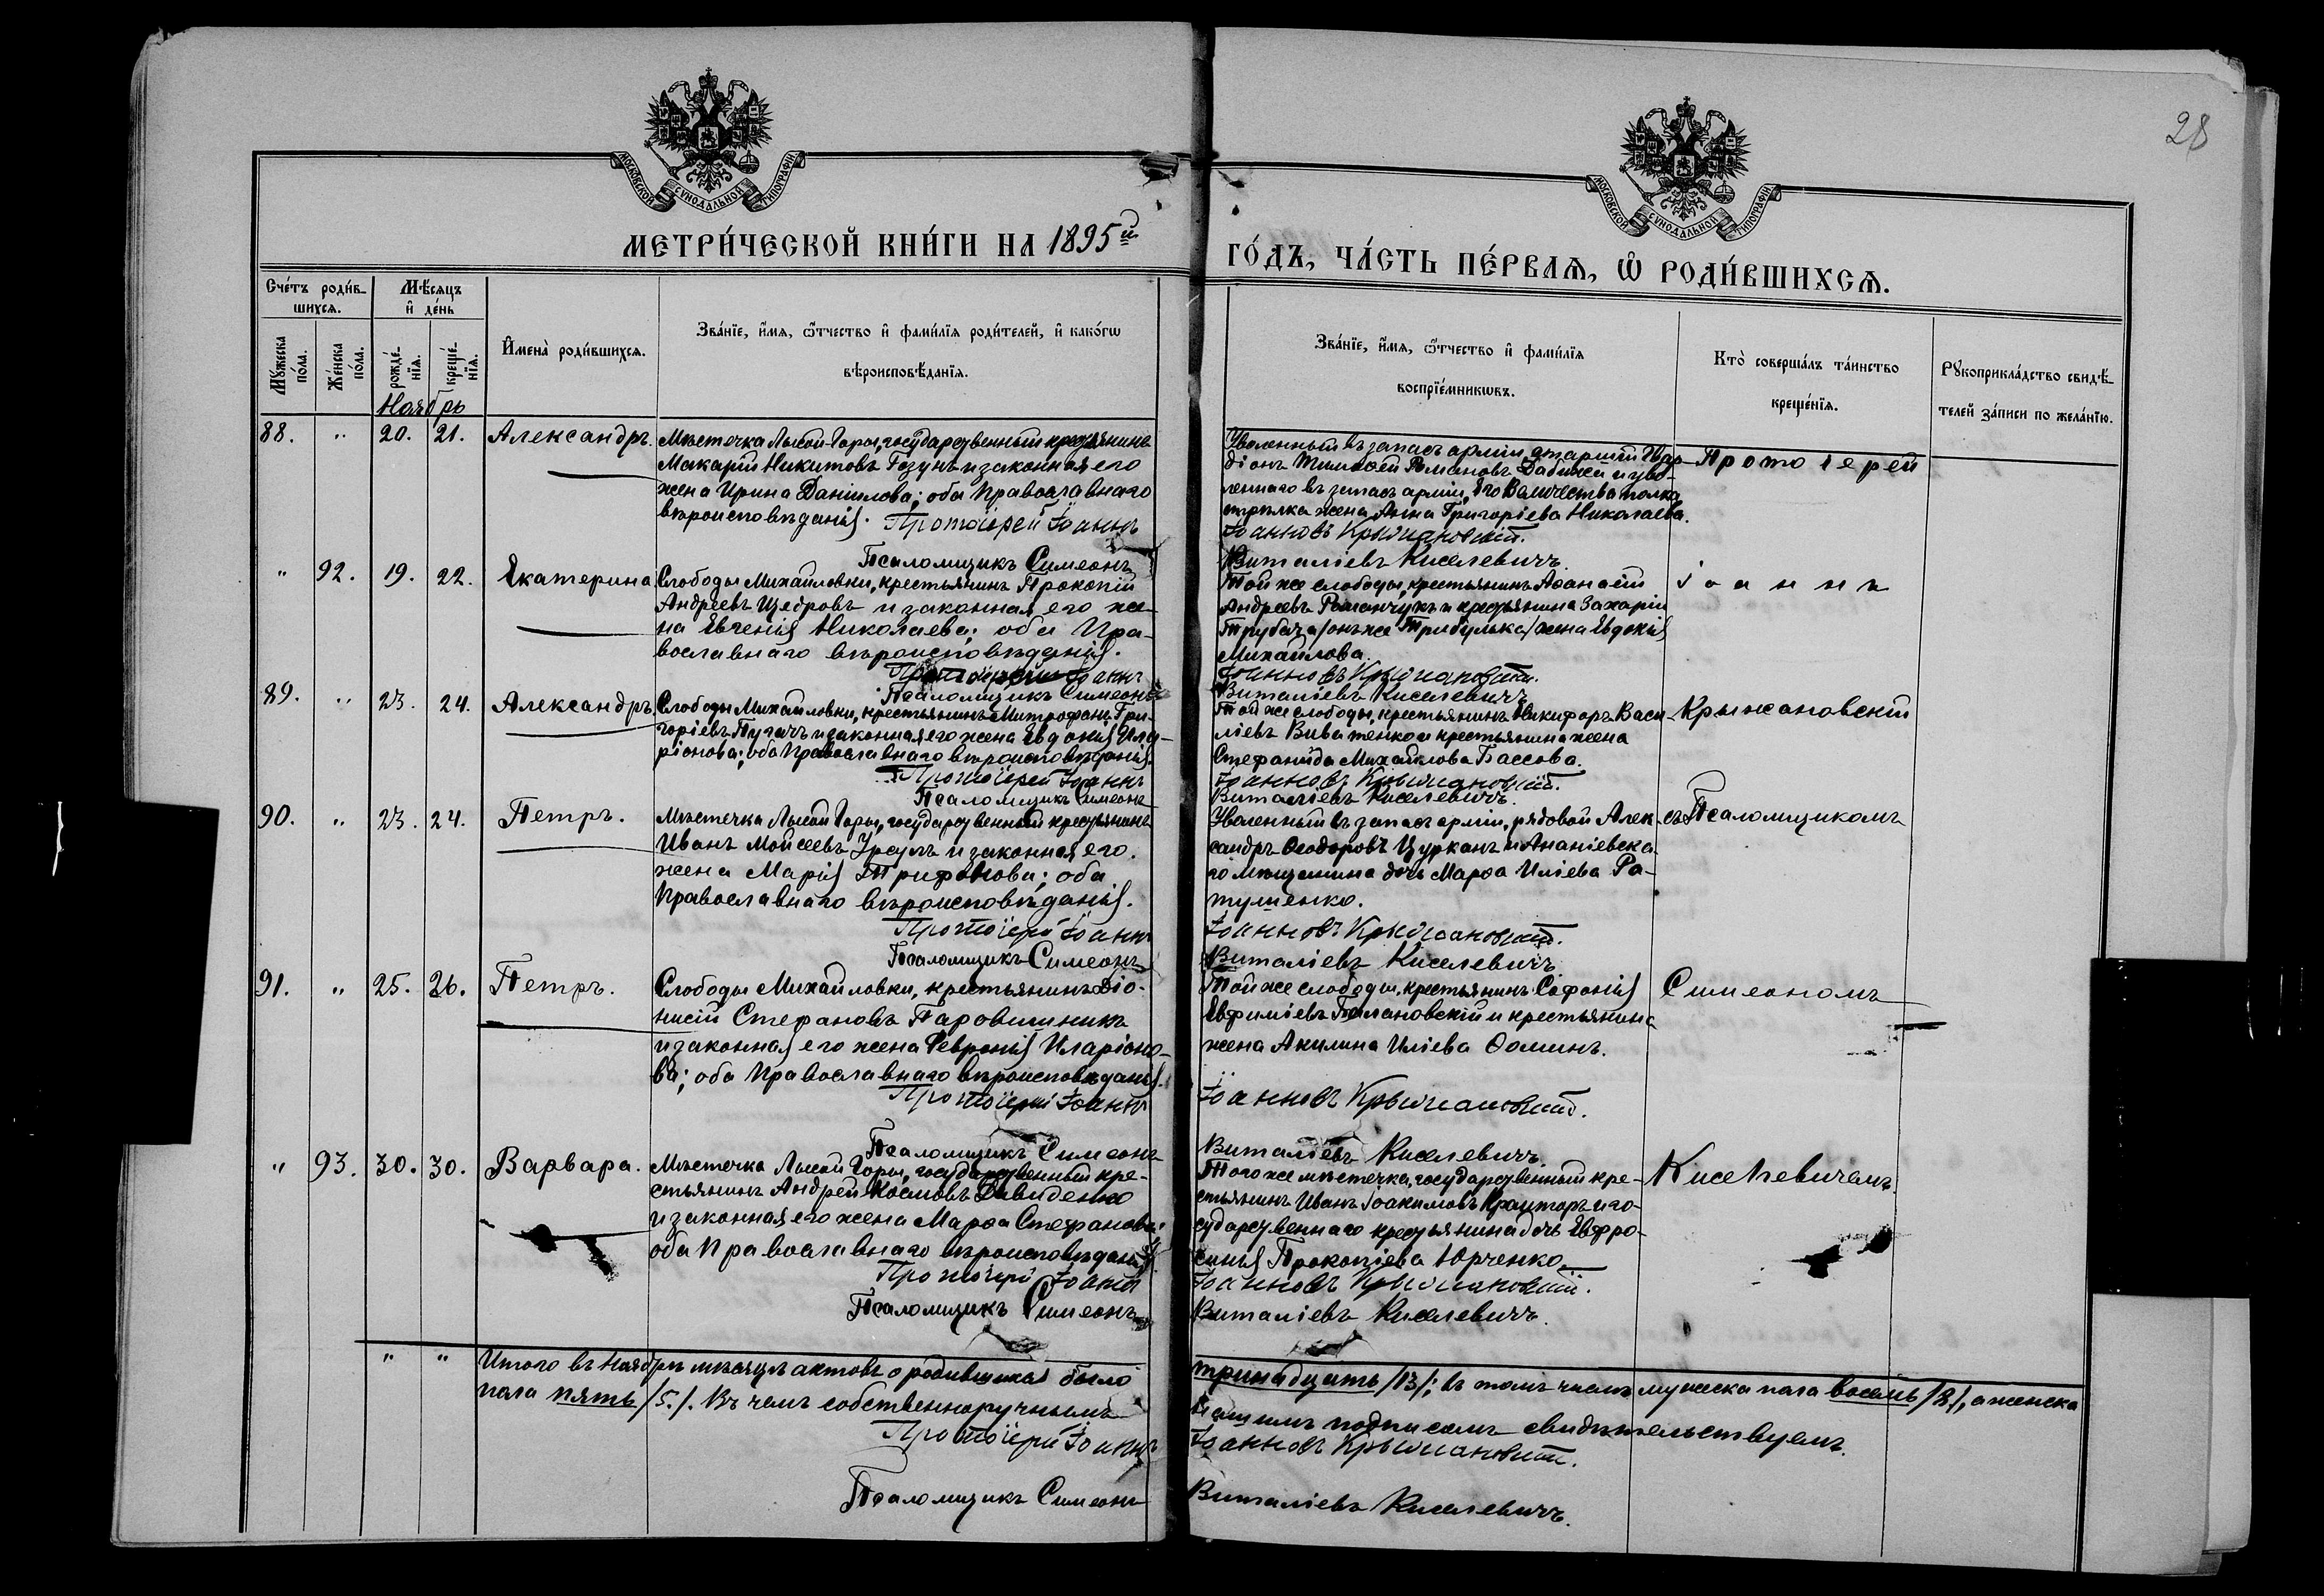 28
МОСКОВСКОЙ СѴНОДАЛЬНОЙ ТИПОГРАФІИ
МОСКОВСКОЙ СѴНОДАЛЬНОЙ ТИПОГРАФІИ
МЕТРИ́ЧЕСКОЙ КНИ́ГИ НА 1895й
ГО́ДЪ, ЧА́СТЬ ПЕ́РВАѦ, Ѽ РОДИ́ВШИХСѦ.
Сче́тъ роди́в-
шихсѧ.
Мѣ́сѧцъ
и҆ де́нь
Мꙋ́жеска
по́ла.
Же́нска
по́ла.
рожде́-
нїѧ.
креще́-
нїѧ.
И҆мена̀ роди́вшихсѧ.
Зва́нїе, и҆́мѧ, ѻ҆́тчество и҆ фами́лїѧ роди́телей, и҆ како́гѡ
вѣроисповѣ́данїѧ.
Зва́нїе, и҆́мѧ, ѻ҆́тчество и҆ фами́лїѧ
воспрїе́мникѡвъ.
Кто̀ соверша́лъ та́инство
креще́нїѧ.
Рꙋкоприкла́дство свидѣ́-
телей за́писи по жела́нїю.
Ноябрь
88. " 20. 21. Александръ.
Мѣстечка Лысой-Горы, государственный крестьянинъ
Макарій Никитовъ Гозунъ и законная его
жена Ирина Даніилова; оба Православнаго
вѣроисповѣданія. Протоіерей Іоаннъ
Псаломщикъ Симеонъ
Уволенный въ запасъ арміи, старшій
Тимоѳей Романовъ и уво-
леннаго въ запасъ арміи, Его Величества полка,
стрѣлка жена Анна Григоріева Николаева.
Іоанновъ Крыжановскій.
Виталіевъ Киселевичъ.
Протоіерей
" 92. 19. 22. Екатерина
Слободы Михайловки, крестьянинъ Прокопій
Андреевъ Щедровъ и законная его же-
на Евгенія Николаева; оба Пра-
вославнаго вѣроисповѣданія.
Протоіерей Іоаннъ
Псаломщикъ Симеонъ
Той же слободы, крестьянинъ Аѳанасій
Андреевъ Романчукъ и крестьянина Захаріи
Трубача /онъ же Трибулька/ жена Евдокія
Михайлова.
Іоанновъ Крыжановскій.
Виталіевъ Киселевичъ
Іоаннъ
89. " 23. 24. Александръ
Слободы Михайловки, крестьянинъ Митрофанъ Гри-
горіевъ Пугачъ и законная его жена Евдокія Ила-
ріонова; оба Православнаго вѣроисповѣданія.
Протоіерей Іоаннъ
Псаломщикъ Симеонъ
Той же слободы, крестьянинъ Никифоръ Васи-
ліевъ Виватенко и крестьянина жена
Стефанида Михайлова Бассова.
Іоанновъ Крыжановскій.
Виталіевъ Киселевичъ.
Крыжановскій
90. " 23. 24. Петръ.
Мѣстечка Лысой Горы, государственный крестьянинъ
Иванъ Мойсеевъ Урсулъ и законная его
жена Марія Трифонова; оба
Православнаго вѣроисповѣданія.
Протоіерей Іоаннъ
Псаломщикъ Симеонъ
Уволенный въ запасъ арміи, рядовой Алек-
сандръ Ѳеодоровъ Цурканъ и Ананіевска-
го мѣщанина дочь Марѳа Иліева Ра-
тушенко.
Іоанновъ Крыжановскій.
Виталіевъ Киселевичъ
съ Псаломщикомъ
91. " 25. 26. Петръ.
Слободы Михайловки, крестьянинъ Діо-
нисій Стефановъ Паровишникъ
и законная его жена Февронія Иларіоно-
ва; оба Православнаго вѣроисповѣданія.
Протоіерей Іоаннъ
Псаломщикъ Симеонъ
Той же слободы, крестьянинъ Софоній
Евфиміевъ Балановскій и крестьянина
жена Акилина Иліева Ѳоминъ.
Іоанновъ Крыжановскій.
Виталіевъ Киселевичъ
Симеономъ
" 93. 30. 30. Варвара.
Мѣстечка Лысой Горы, государственный кре-
стьянинъ Андрей Космовъ Давиденко
и законная его жена Марѳа Стефанова;
оба Православнаго вѣроисповѣданія.
Протоіерей Іоаннъ
Псаломщикъ Симеонъ
Того же мѣстечка, государственный кре-
стьянинъ Иванъ Іоакимовъ Крауторъ и го-
сударственнаго крестьянина дочь Евфро-
синія Прокопіева Юрченко.
Іоанновъ Крыжановскій.
Виталіевъ Киселевичъ.
Киселевичемъ.
" " Итого въ Ноябрѣ мѣсяцѣ актовъ о родившихся было тринадцать /13/; въ томъ числѣ мужеска пола восемь /8/, а женска
пола пять /5./. Въ чемъ собственноручнымъ нашимъ подписомъ свидѣтельствуемъ.
Протоіерей Іоаннъ Іоанновъ Крыжановскій.
Псаломщикъ Симеонъ Виталіевъ Киселевичъ.